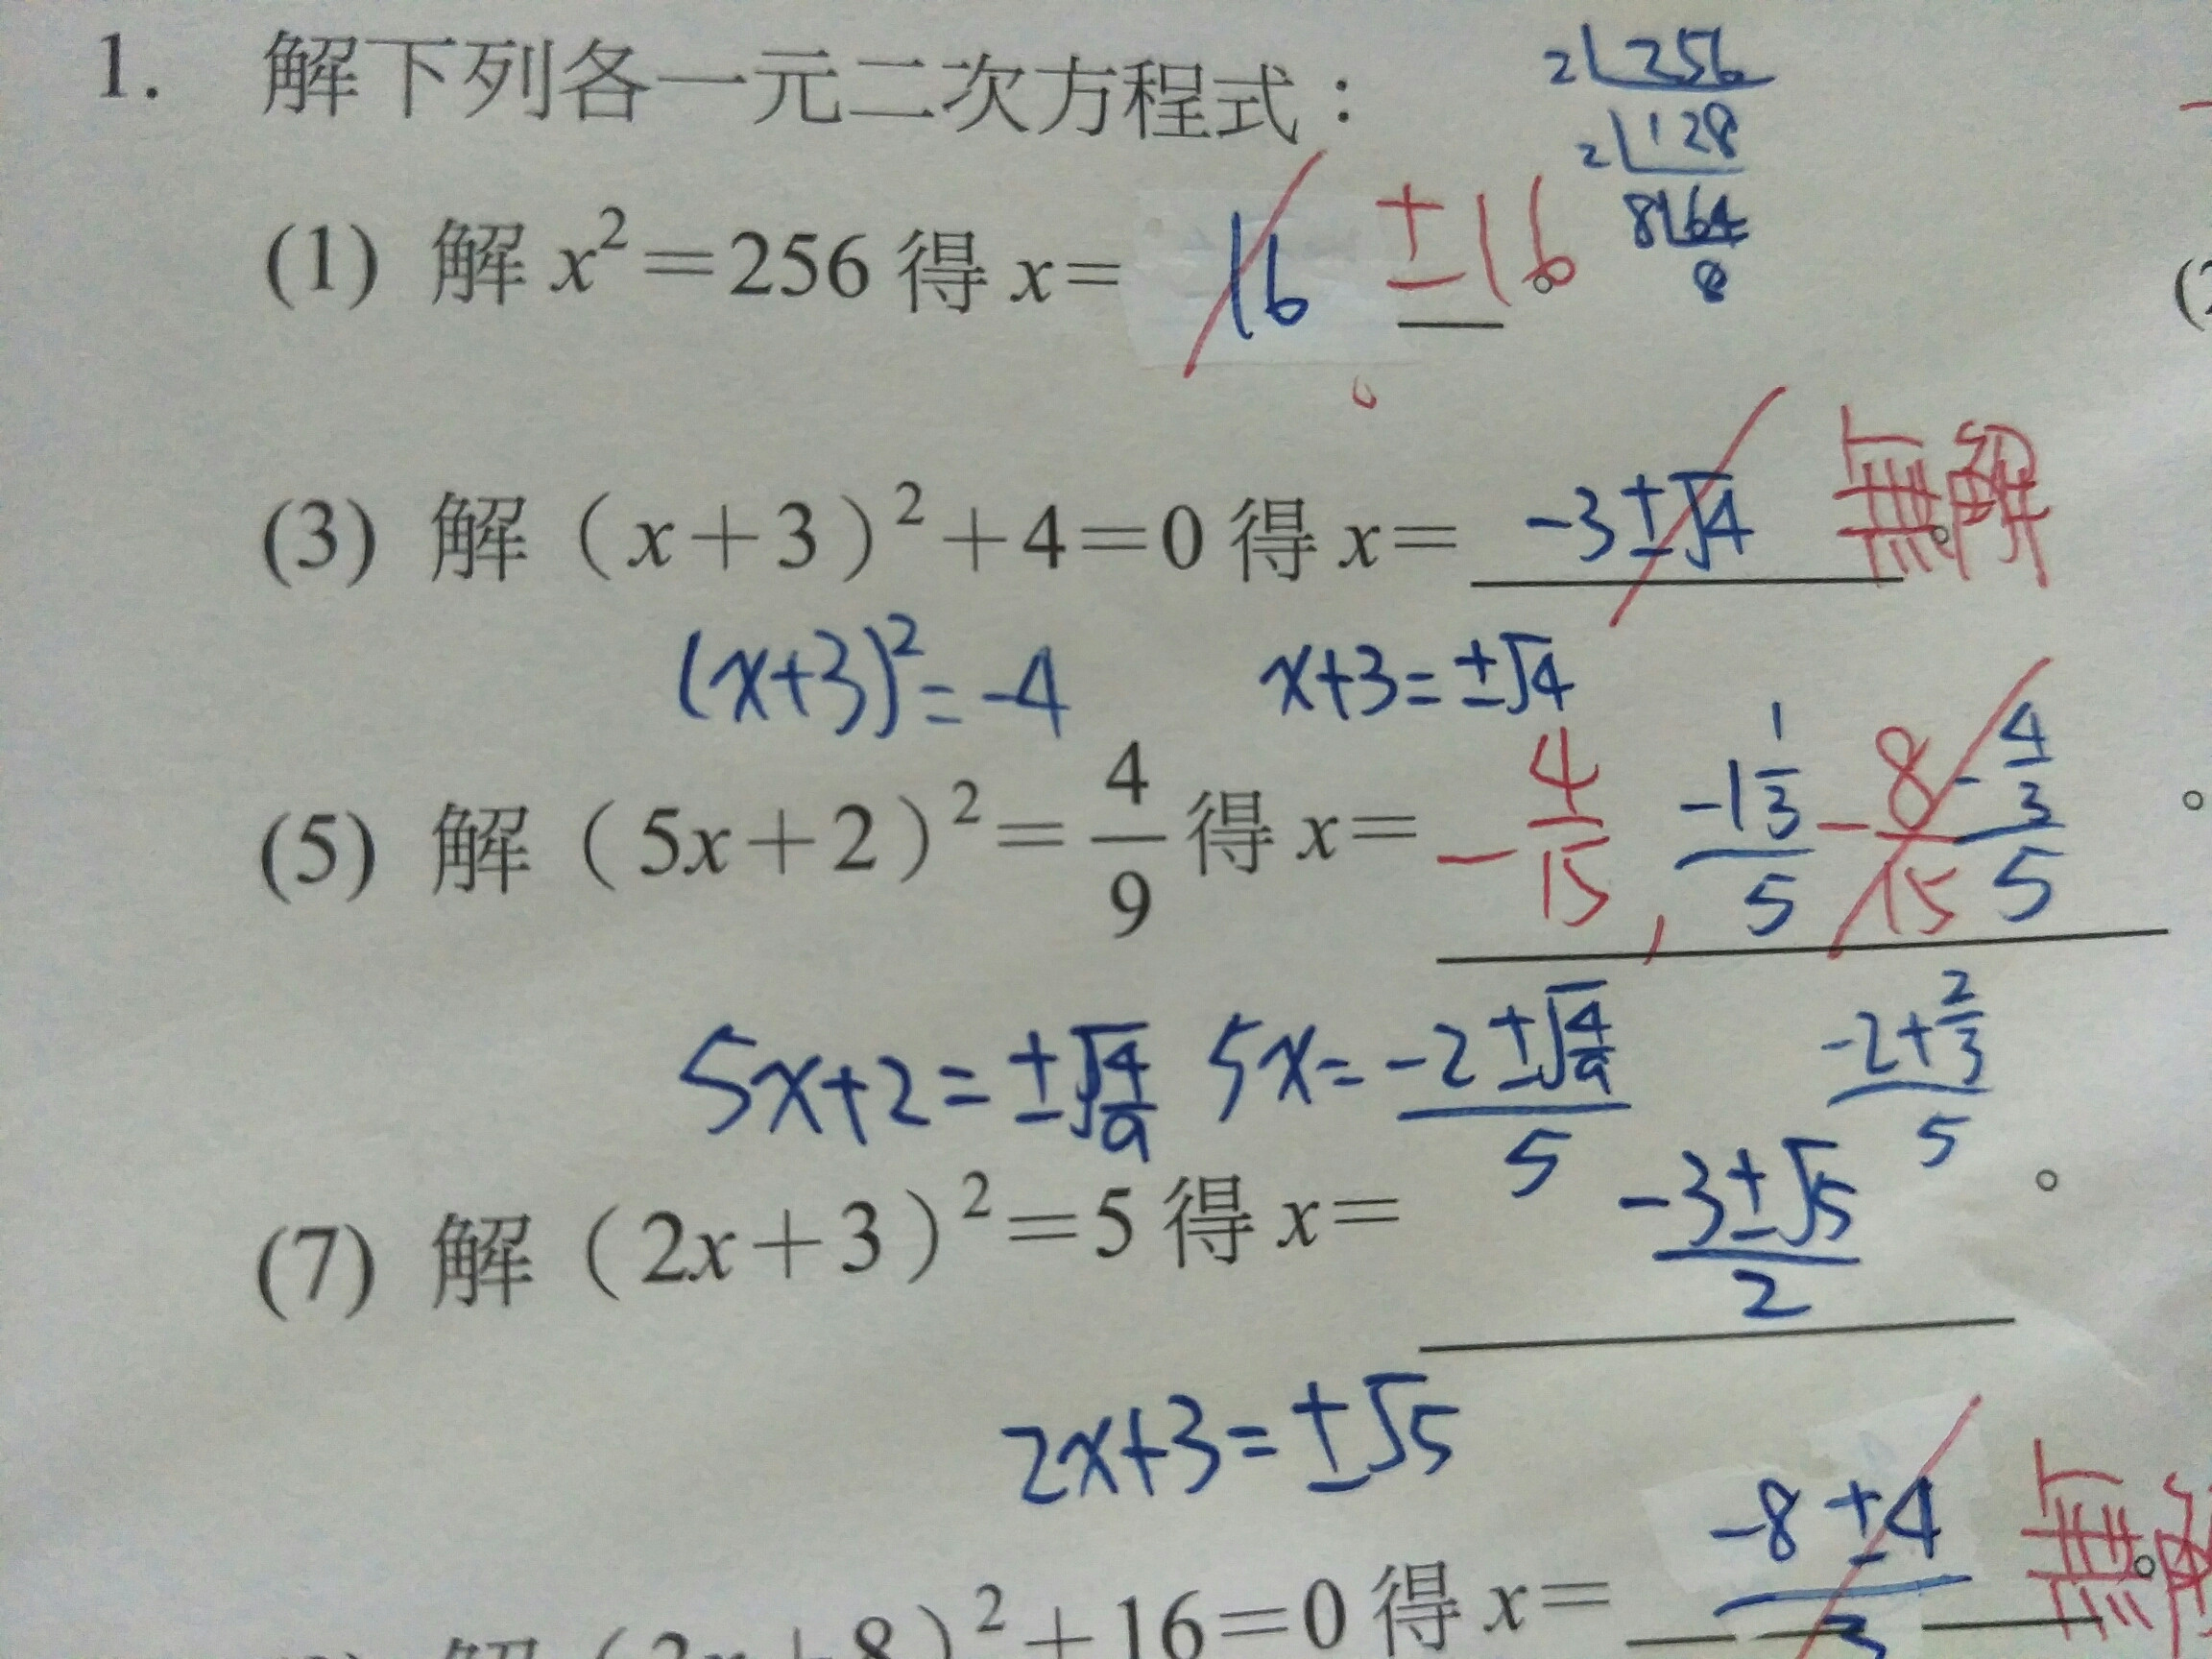 1. 解下列各一元二次方程式：
2 256
2 128
8 64
8
(1) 解 x²=256 得 x= 16 ±16 。
(3) 解 (x+3)²+4=0 得 x= -3±√4 無解 。
(x+3)²=-4 x+3=±√4
(5) 解 (5x+2)²=4/9 得 x= -4/15 , (-1 1/3)/5 -8/15 (-4/3)/5 。
5x+2=±√(4/9) 5x=(-2±√(4/9))/5 (-2+2/3)/5
(7) 解 (2x+3)²=5 得 x= (-3±√5)/2 。
2x+3=±√5
+8)²+16=0 得 x= (-8±4)/3 無 。